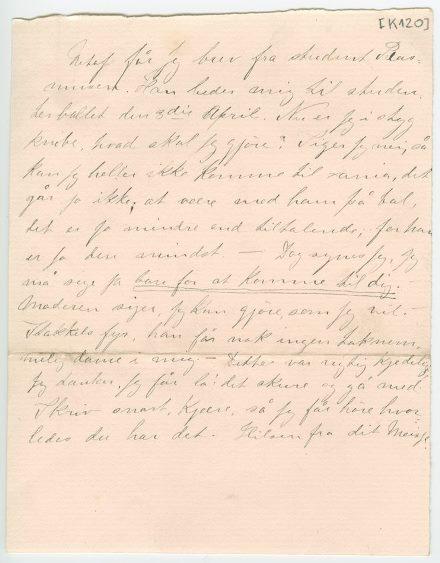 [K120]
Netop får jeg brev fra student Ras-
mussen. Han beder mig til studen-
terballet den 3die April. Nu er jeg i stygg
knibe, hvad skal jeg gjöre? Siger jeg nei, så
kan jeg heller ikke komme til Xania, det
går jo ikke, at være med ham på bal,
det er jo mindre end tiltalende, for han
er jo den mindst — Dog synes jeg, jeg
må sige ja bare for at komme til dig. —
Moderen siger, jeg kan gjöre, som jeg vil. —
Stakkels fyr, han får nok ingen taknem-
melig dame i mig. — Dette var rigtig kjedelig.
Jeg tænker, jeg får la' det skure og gå med.
Skriv snart, kjære, så jeg får höre hvor-
ledes du har det. Hilsen fra dit